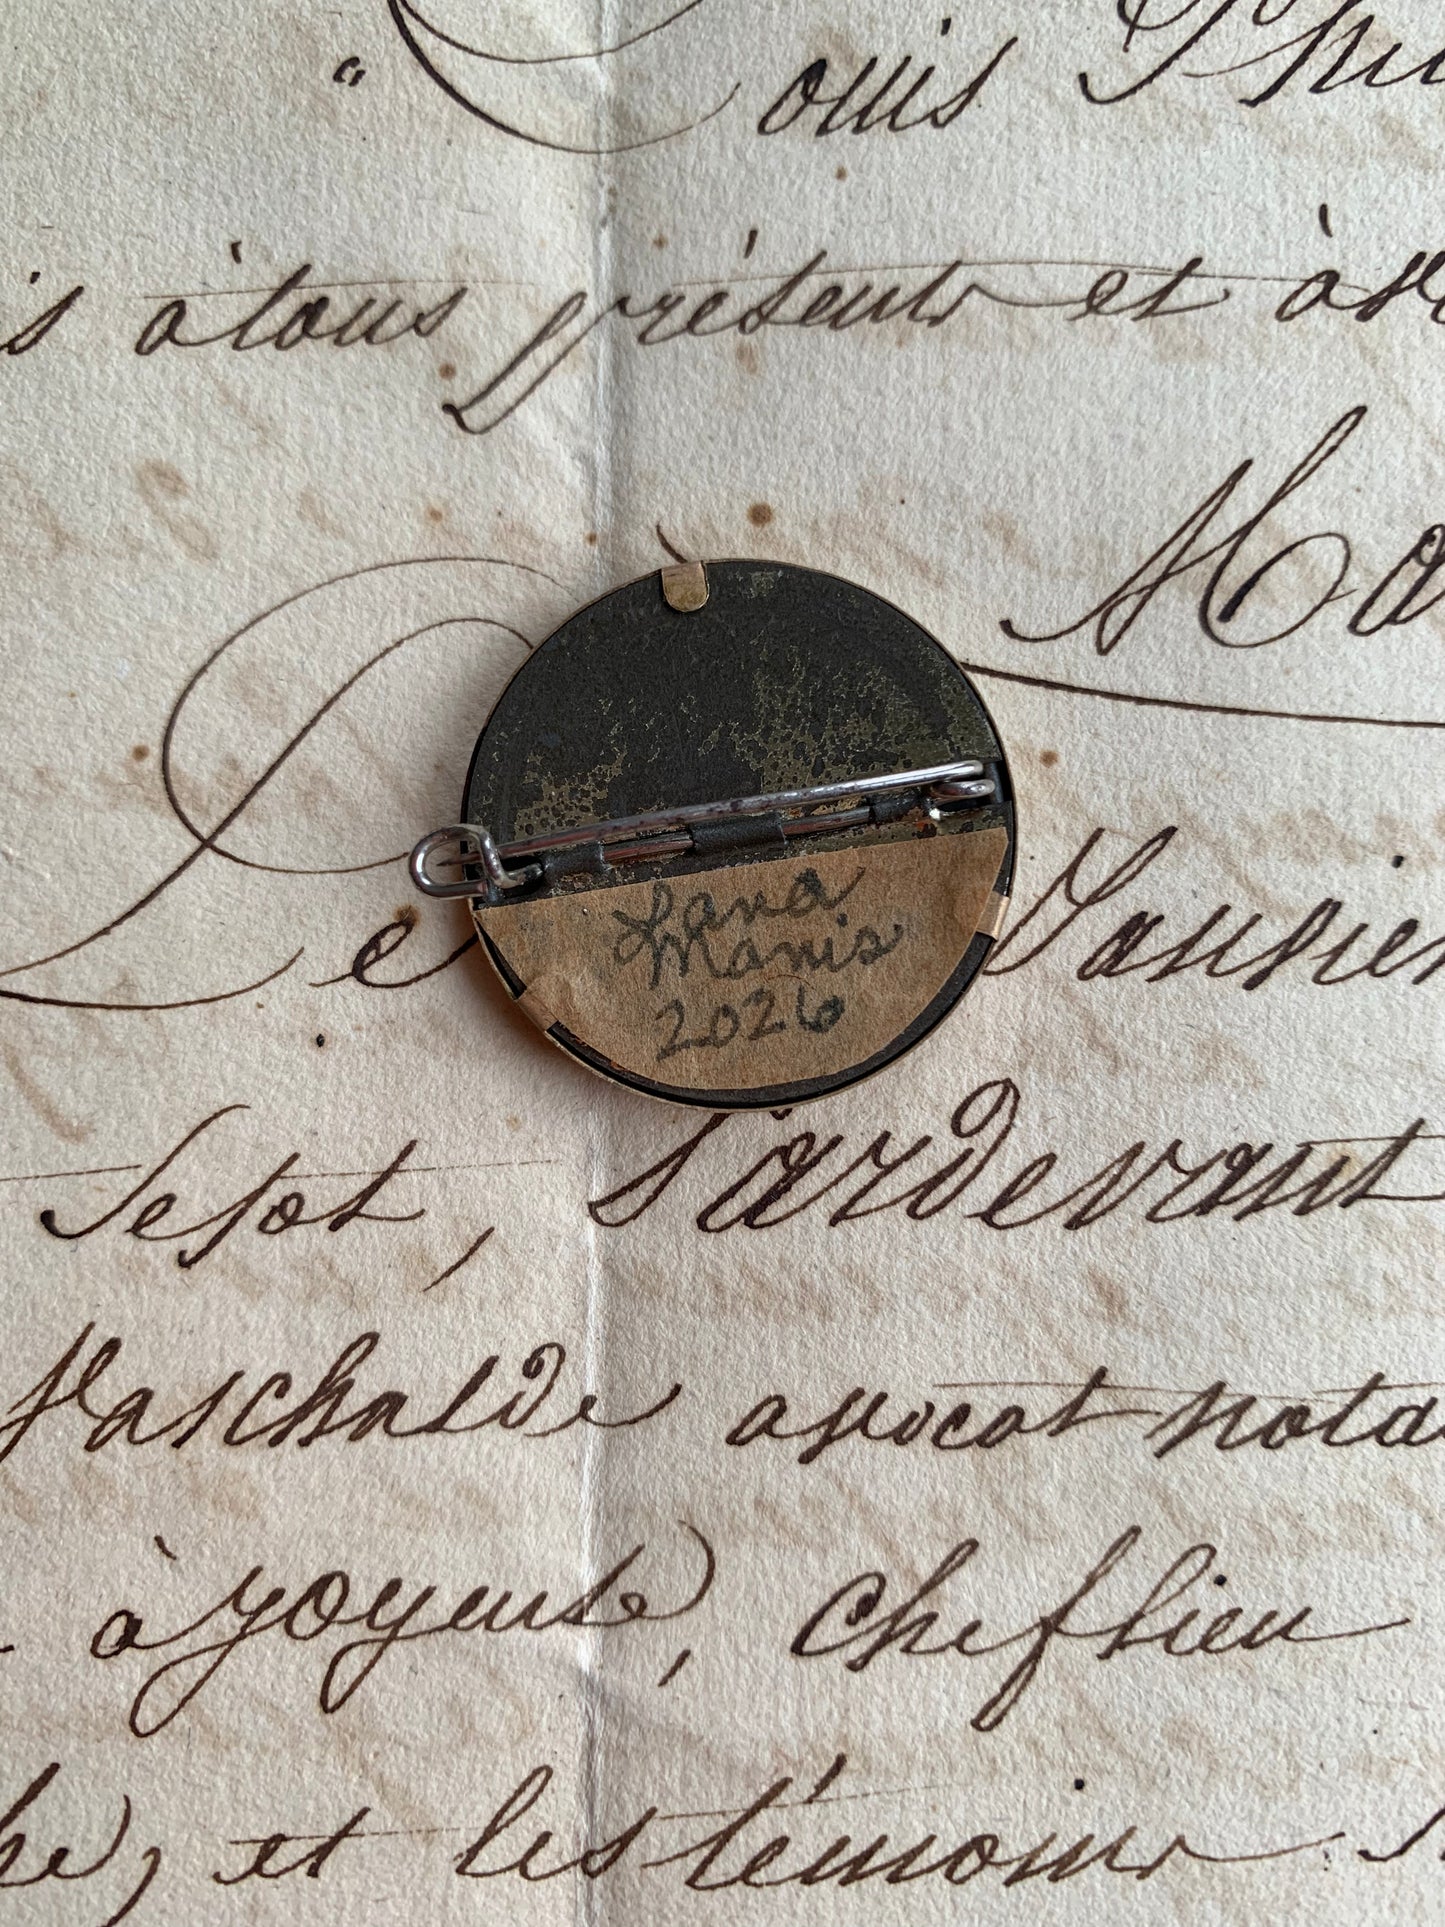 " Louis Phi
is à tous présents et à ve
Ma
Lana
Manis
2026
De
Septot, Pardevant
Paschalde avocat nota
à Joyeuse, chef lieu
he, et les témoins